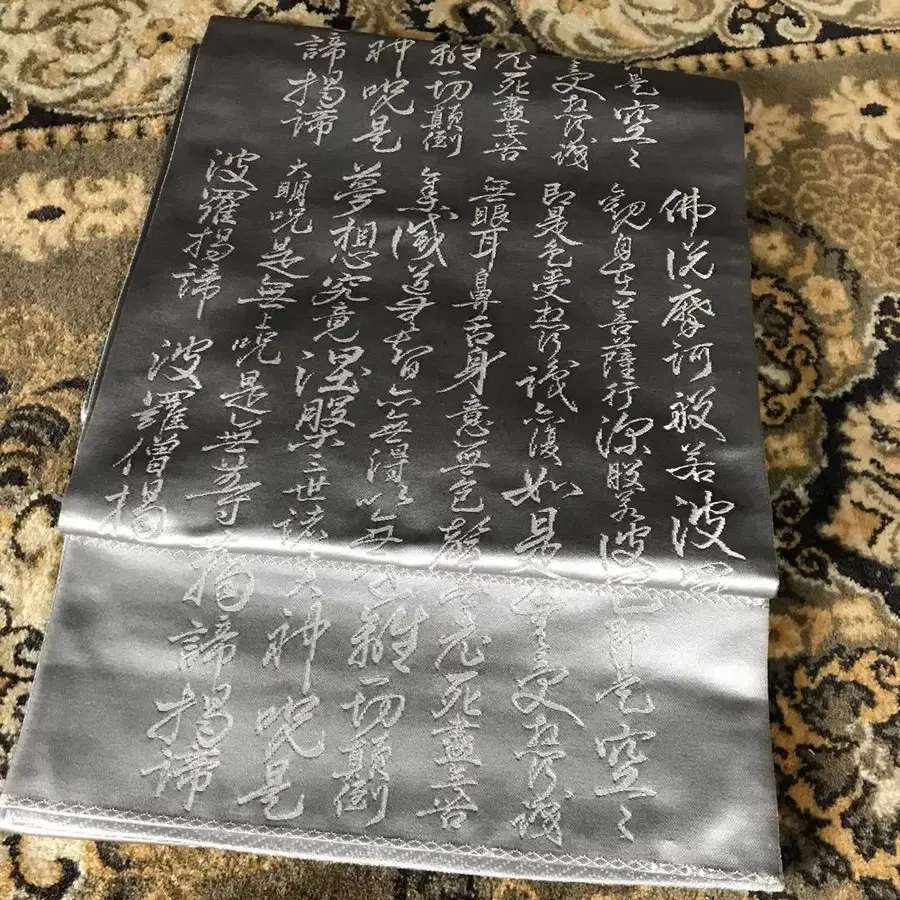 是空々
受想行識
老死盡無苦
離一切顛倒
神呪是
諦揭諦
佛説摩訶般若波
觀自在菩薩行深般若波
即是色受想行識亦復如是
無眼耳鼻舌身意無色聲
集滅道無智亦無得以無
夢想究竟涅槃三世諸
大明呪是無上呪是無等
波羅揭諦
波羅僧揭
色即是空々
受想行識
老死盡無苦
離一切顛倒
大神呪是
揭諦揭諦